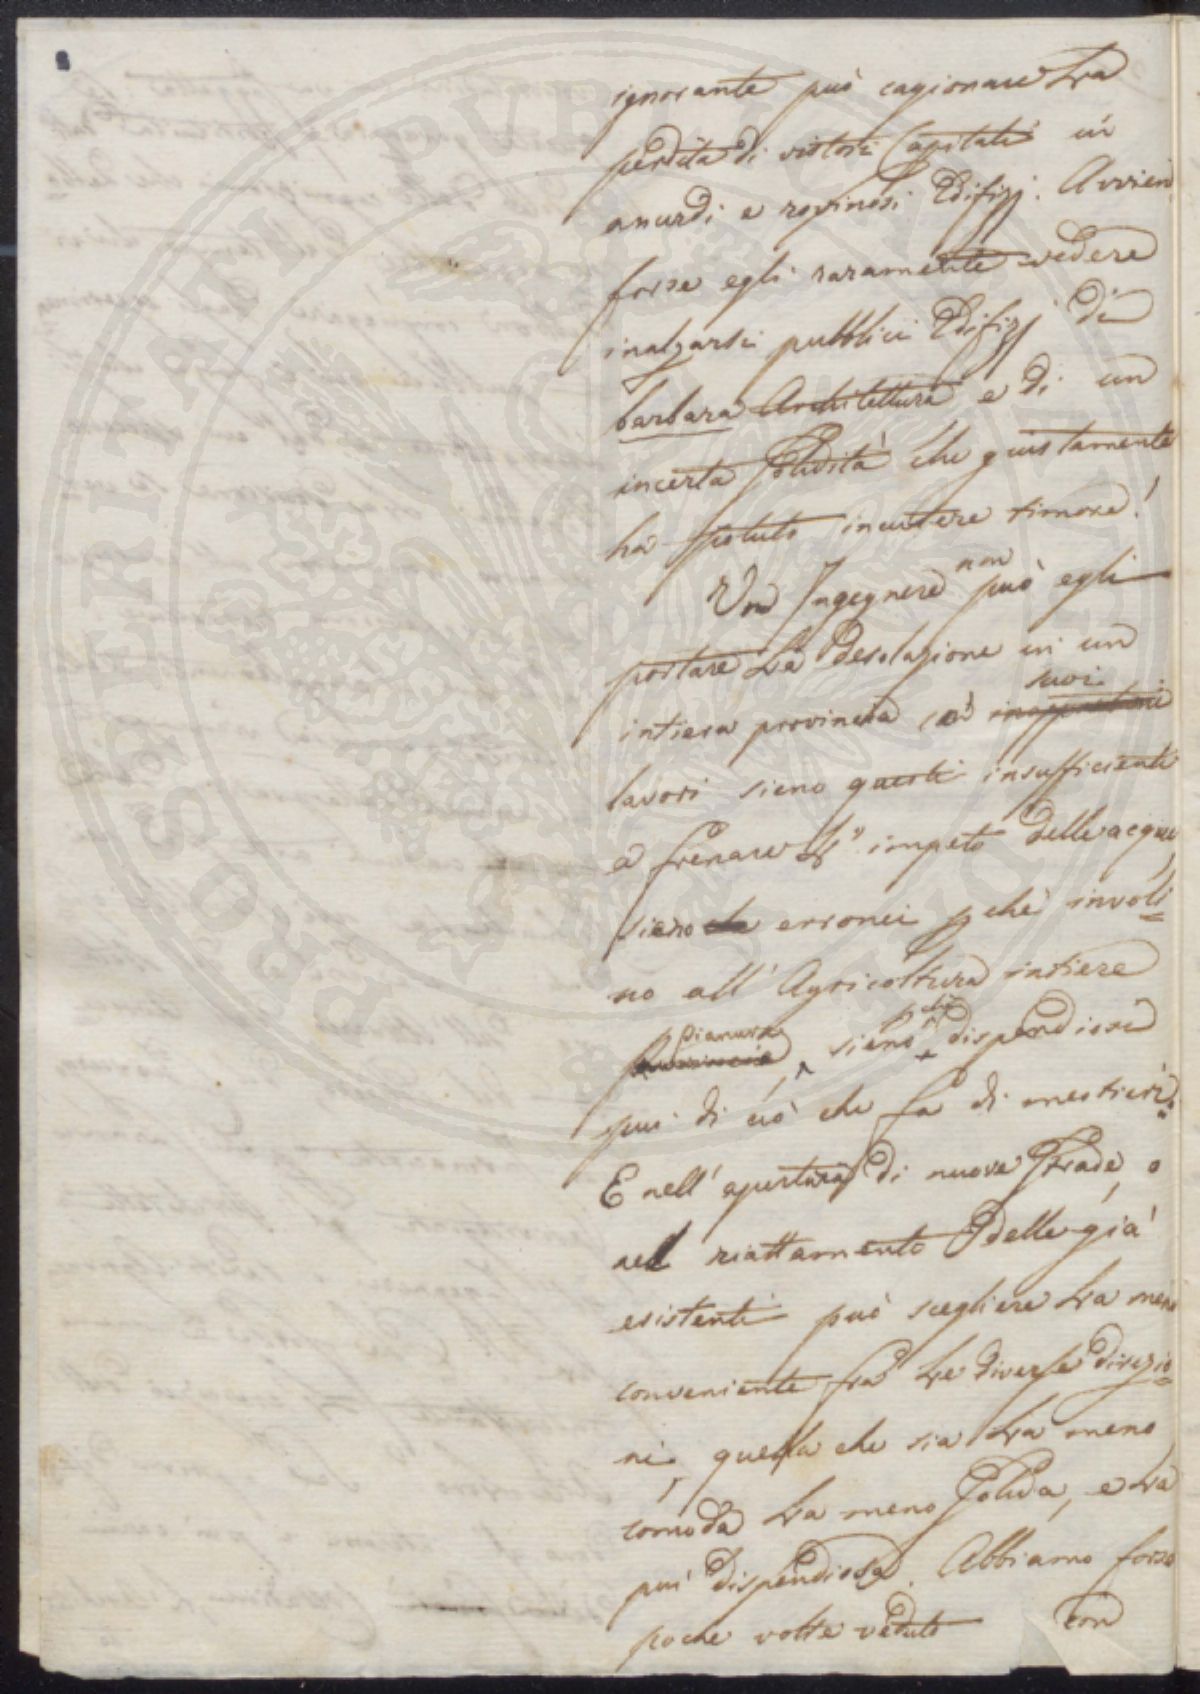 ignorante può cagionare la
perdita di vistosi Capitali in
assurdi e rovinosi Edifizj. Avvien
forse egli raramente vedere
inalzarsi pubblici Edifizj di
barbara Architettura e di un
incerta Solidità che giustamente
ha potuto incutere timore!
Un Ingegnere non può egli
portare la desolazione in un
intiera provincia co' suoi
lavori sieno questi insufficienti
a frenare l'impeto delle acque,
sieno erronei pchè involi=
no all'Agricoltura intiere
pianure, sieno pchè dispendiosi
più di ciò che fa di mestieri.
E nell'apertura di nuove Strade, o
nel riattamento delle già
esistenti può scegliere la meno
conveniente fra le diverse direzio=
ni, quella che sia la meno
comoda la meno Solida, e la
più dispendiosa. Abbiamo forse
poche volte veduto con
POSTERITATI PUBLICE